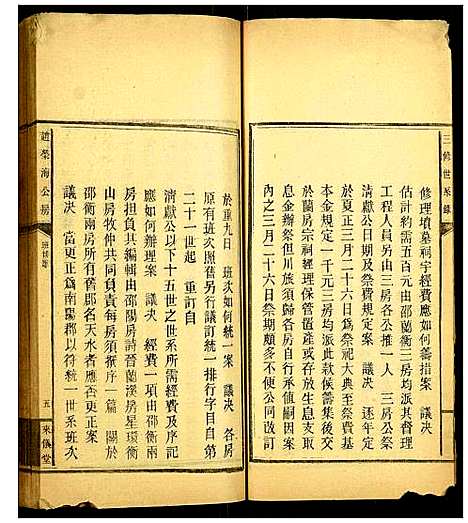 三修世系錄
修理墳墓祠宇經費應如何籌措案　議決
估計約需五百元由邵蘭衡三房均派其督理
工程人員另由三房各公推一人　三房公祭
清獻公日期及祭費規定案　議決　逐年定
於夏正三月二十六日爲祭祀大典至祭費基
本金規定一千元三房均派此款俟籌集後交
於蘭房宗祠經理保管置產或存放生息支取
息金辦祭但川旅須歸各房自行承值嗣因案
內之三月二十六日祭期頗多不便公同改訂
於重九日　班次如何統一案　議決　各房
原有班次照舊另行議訂統一排行字目自第
二十一世起　重訂自
清獻公以下十五世之世系所需經費及序記
應如何辦理案　議決　經費一項由邵衡兩
房担負其編輯由邵陽房詩晉蘭溪房星環衡
山房牧仲共同負責每房須撰序一篇　關於
邵衡兩房所有舊郡名天水者應否更正案
議決　當更正爲南陽郡以符統一世系班次
趙榮海公房
五
來儀堂